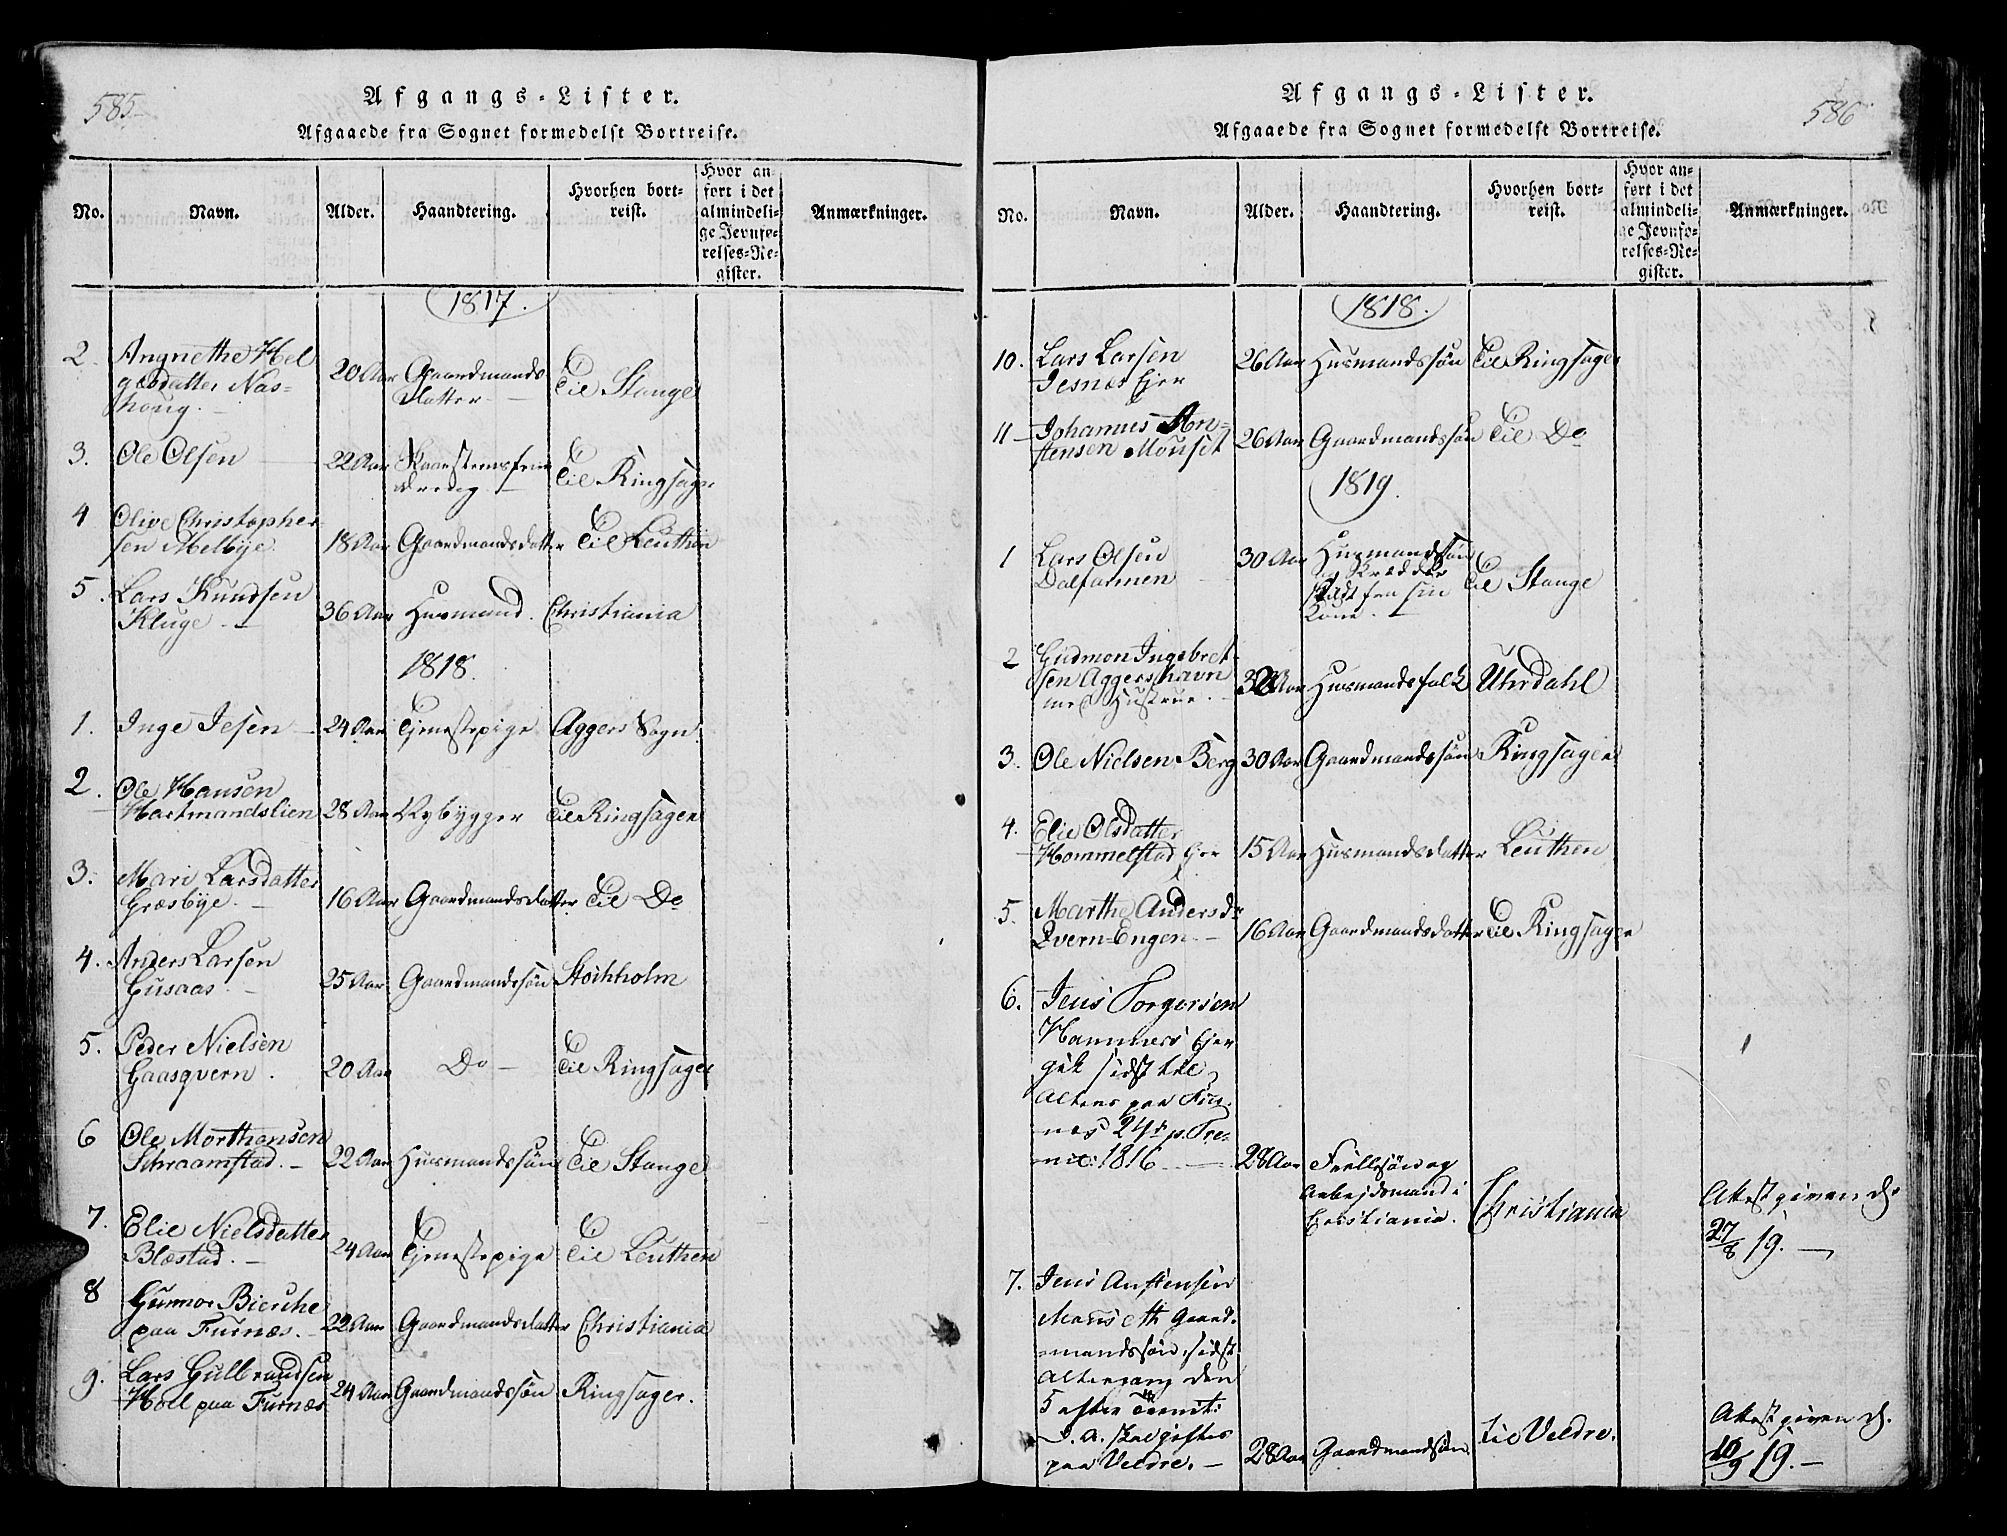 585
Afgangs-Lister.
Afgaaede fra Sognet formedelst Bortreise.
No. Navn. Alder. Haandtering. Hvorhen bortreist. Hvor anført i det almindelige Jevnførelses-Register. Anmærkninger.
1817.
2. Angnethe Hel
gesdatter Nas-
houg. 20 Aar Gaardmands
Datter Til Stange
3. Ole Olsen 22 Aar Skorstensfeier
dreng Til Ringsager
4 Olive Christopher
sen Melbye. 18 Aar Gaardmandsdatter Til Leuthen
5. Lars Knudsen
Kluge 36 Aar Huusmand. Christiania
1818.
1. Inge Jesen 24 Aar Tjenestepige Aggers Sogn
2. Ole Hansen
Hartmandslien 28 Aar Nybygger Til Ringsager
3. Mari Larsdatter
Græsbye. 16 Aar Gaardmandsdatter Til Do
4. Anders Larsen
Gusaas. 25 Aar Gaardmandssøn Stockholm
5. Peder Nielsen
Gaasqvern. 20 Aar Do Til Ringsager
6 Ole Morthensen
Schraamstad. 22 Aar Huusmandssøn Til Stange
7. Elie Nielsdatter
Blæstad. 24 Aar Tjenestepige Til Leuthen
8 Gunnor Bierche
paa Furnæs. 22 Aar Gaardmandsdatter Christiania
9. Lars Gulbrandsen
Holl paa Furnæs 24 Aar Gaardmandssøn Ringsager.
586
Afgangs-Lister.
Afgaaede fra Sognet formedelst Bortreise.
No. Navn. Alder. Haandtering. Hvorhen bortreist. Hvor anført i det almindelige Jevnførelses-Register. Anmærkninger.
1818.
10. Lars Larsen
Jesnæs Eier 26 Aar Huusmandssøn Til Ringsager
11 Johannes Arn-
stensen Mouset 26 Aar Gaardmandssøn Til Do
1819.
1 Lars Olsen
Dalfarmen 30 Aar Huusmandssøn
og Skrædder
skildt fra sin
Kone. Til Stange
2 Gudmon Ingebret
sen Aggershavn
med Hustrue. 32 Aar Huusmandsfolk Uhrdahl
3. Ole Nielsen Berg 30 Aar Gaardmandssøn Ringsager
4. Elie Olsdatter
Hommelstad Eier 15 Aar Huusmandsdatter Leuthen
5. Marthe Andersdr
Qvern-Engen 16 Aar Gaardmandsdatter Til Ringsager
6. Jens Torgersen
Hammers Eier
gik sidst til
Alters paa Fur-
næs 24de p. Tre-
nit: 1816 28 Aar og
Arbejdsmand i
Cristiania. Christiania Attest given d.
27/8 19.
7. Jens Anstensen
Mouseth Gaard-
mandssøn, sidst
Altergang den
5 efter Trenit:
d. A. skal giftes
paa Veldre. 28 Aar Gaardmandsøn til Veldre. Attest given d.
10/9 19.